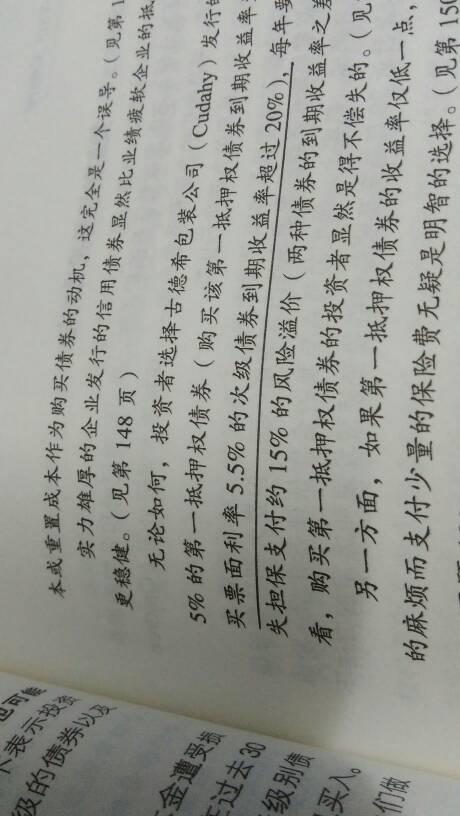 本或重置成本作为购买债券的动机，这完全是一个误导。（见第1
实力雄厚的企业发行的信用债券显然比业绩疲软企业的抵
更稳健。（见第 148 页）
无论如何，投资者选择古德希包装公司（Cudahy）发行的
5%的第一抵押权债券（购买该第一抵押权债券到期收益率
买票面利率 5.5%的次级债券到期收益率超过 20%），每年要
失担保支付约 15%的风险溢价（两种债券的到期收益率之差
看，购买第一抵押权债券的投资者显然是得不偿失的。（见
另一方面，如果第一抵押权债券的收益率仅低一点，
的麻烦而支付少量的保险费无疑是明智的选择。（见第 150
但可能
下表示投资
级的债券以及
金遭受损
在过去 30
级别债
买入。
们做